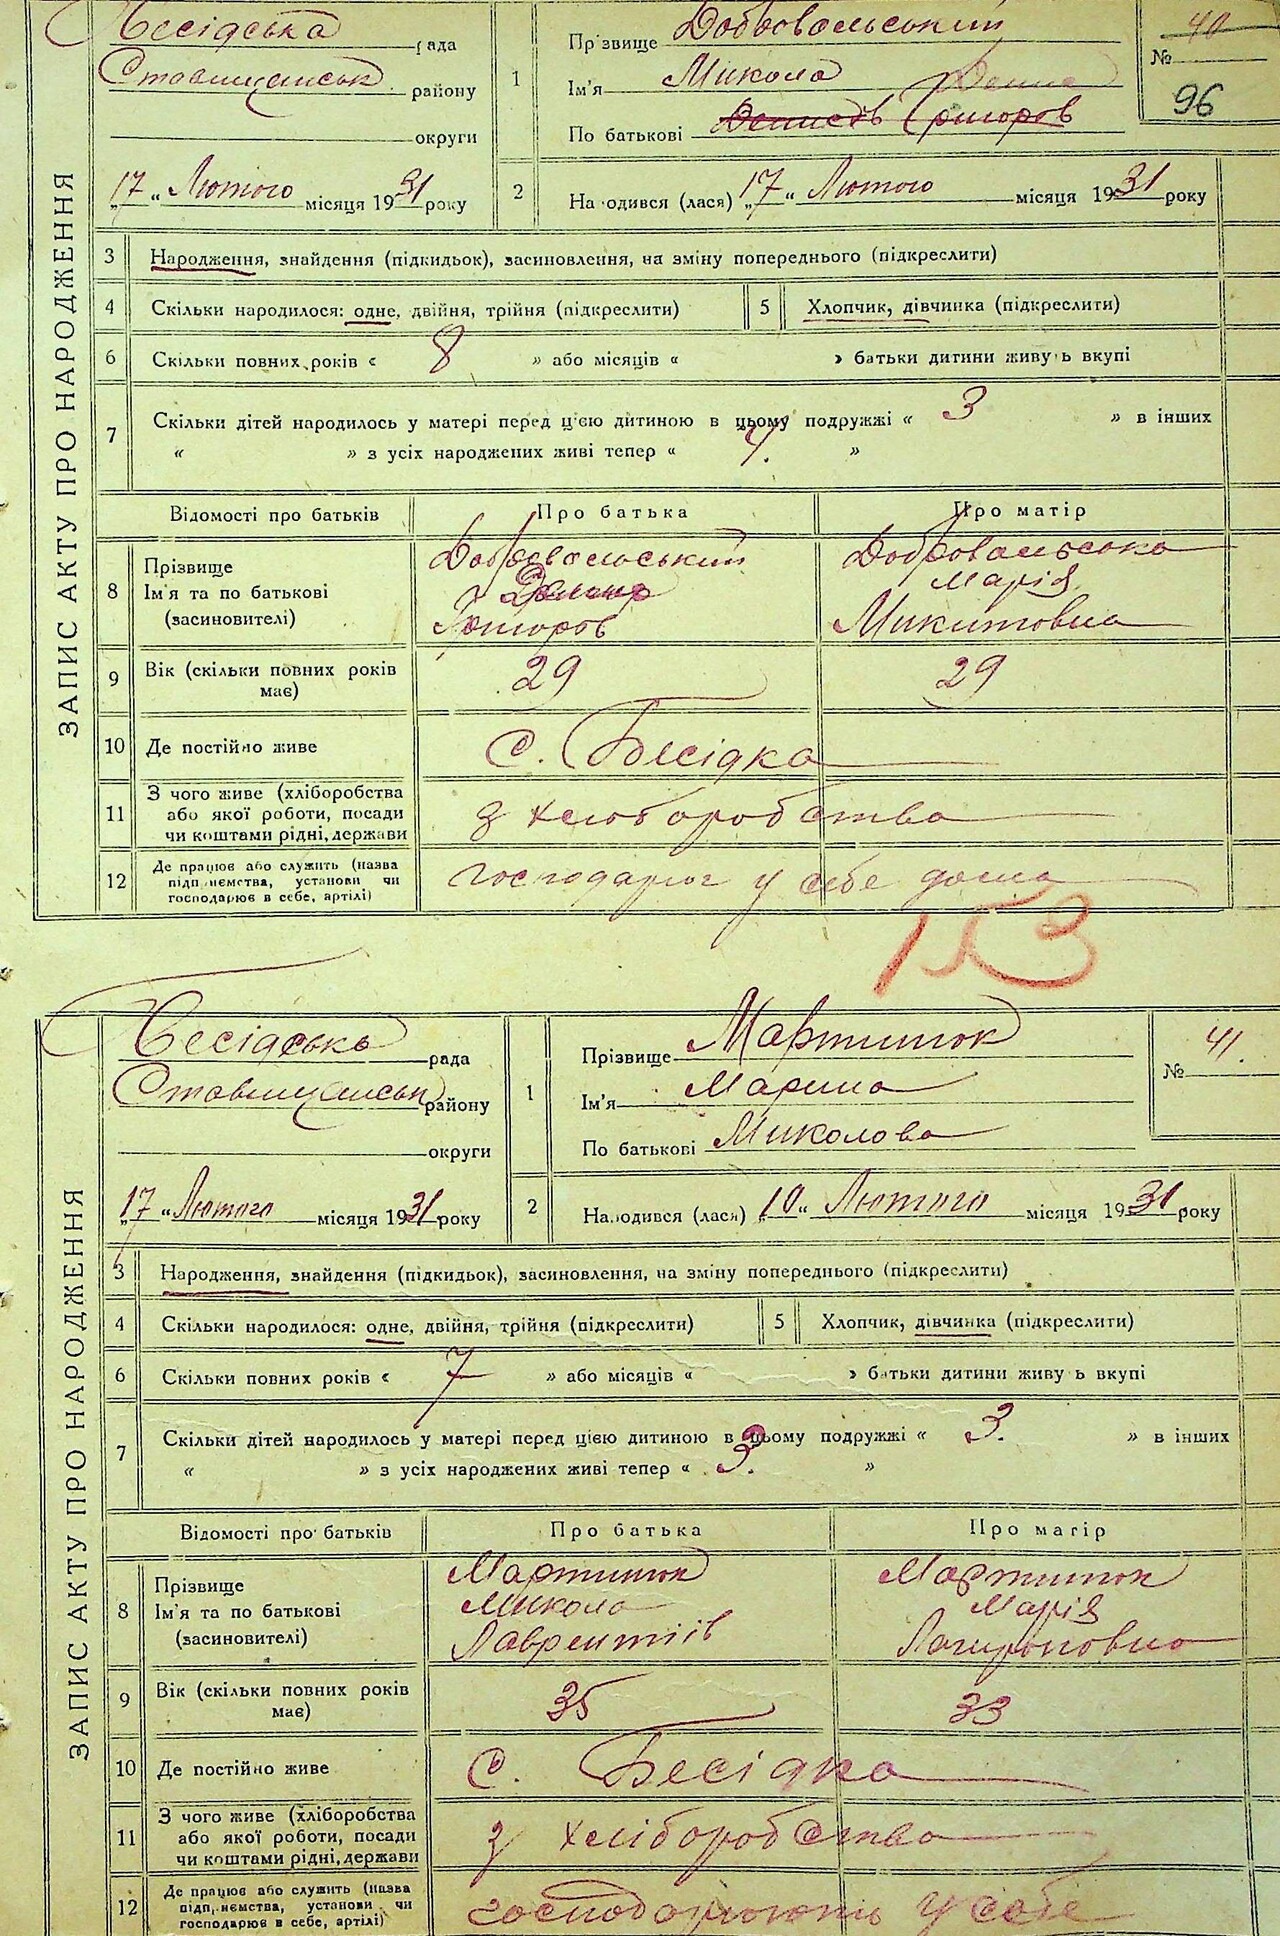 ЗАПИС АКТУ ПРО НАРОДЖЕННЯ
Бесідська рада
Ставищанськ району
округи
„17“ Лютого місяця 1931 року
1 Прізвище Добровольський
Ім'я Микола
По батькові Денисів Григоров
№ 40
96
2 Народився (лася) „17“ Лютого місяця 1931 року
3 Народження, знайдення (підкидьок), засиновлення, на зміну попереднього (підкреслити)
4 Скільки народилося: одне, двійня, трійня (підкреслити) 5 Хлопчик, дівчинка (підкреслити)
6 Скільки повних років « 8 » або місяців « » батьки дитини живуть вкупі
7 Скільки дітей народилось у матері перед цією дитиною в цьому подружжі « 3 » в інших
« » з усіх народжених живі тепер « 4. »
Відомості про батьків Про батька Про матір
8 Прізвище Добровольський Добровольська
Ім'я та по батькові Марія
(засиновителі) Григоров Микитовна
9 Вік (скільки повних років має) 29 29
10 Де постійно живе с. Бесідка
11 З чого живе (хліборобства
або якої роботи, посади з хлеборобства
чи коштами рідні, держави
12 Де працює або служить (назва
підприємства, установи чи господарюг у себе дома
господарює в себе, артілі)
153
ЗАПИС АКТУ ПРО НАРОДЖЕННЯ
Бесідська рада
Ставищанськ району
округи
„17“ Лютого місяця 1931 року
1 Прізвище Мартинюк
Ім'я Марина
По батькові Миколова
№ 41.
2 Народився (лася) „10“ Лютого місяця 1931 року
3 Народження, знайдення (підкидьок), засиновлення, на зміну попереднього (підкреслити)
4 Скільки народилося: одне, двійня, трійня (підкреслити) 5 Хлопчик, дівчинка (підкреслити)
6 Скільки повних років « 7 » або місяців « » батьки дитини живуть вкупі
7 Скільки дітей народилось у матері перед цією дитиною в цьому подружжі « 3. » в інших
« » з усіх народжених живі тепер « 3. »
Відомості про батьків Про батька Про матір
8 Прізвище Мартинюк Мартинюк
Ім'я та по батькові Микола Марія
(засиновителі) Лаврентіїв
9 Вік (скільки повних років має) 35 33
10 Де постійно живе с. Бесідка
11 З чого живе (хліборобства
або якої роботи, посади з хліборобства
чи коштами рідні, держави
12 Де працює або служить (назва
підприємства, установи чи господарюють у себе
господарює в себе, артілі)